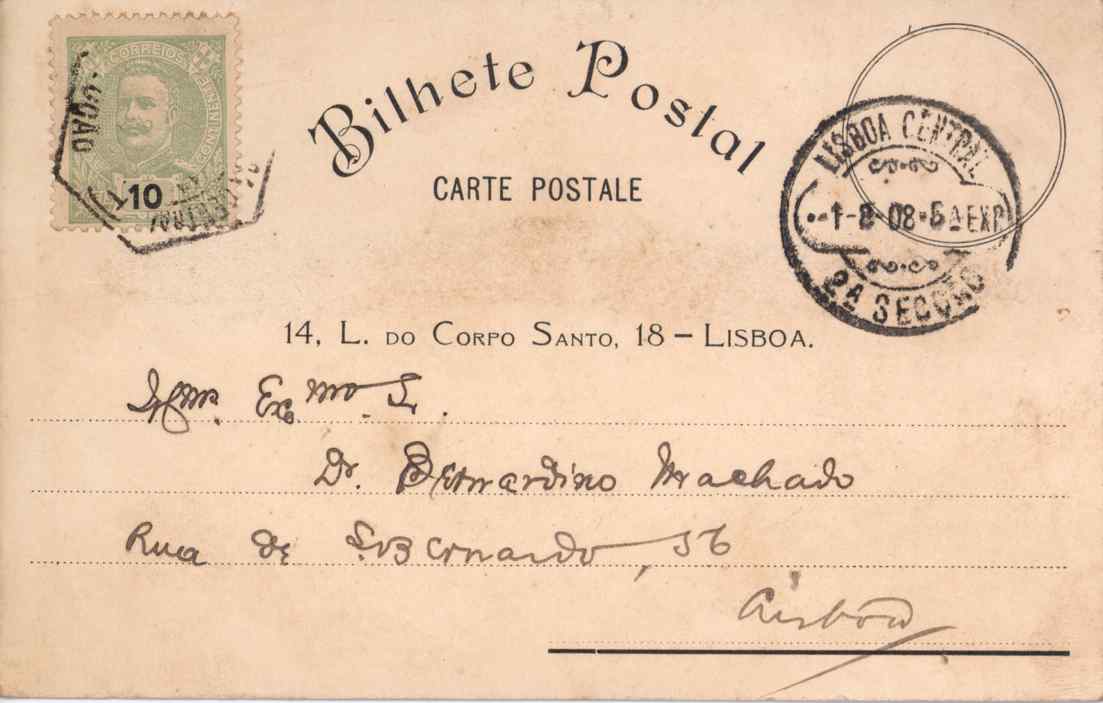 CORREIOS
10
Bilhete Postal
CARTE POSTALE
LISBOA CENTRAL
2A SECÇÃO
14, L. DO CORPO SANTO, 18 – LISBOA.
Illmo. Exmo. Sr.
Dr. Bernardino Machado
Rua de S. Bernardo, 56
Lisboa